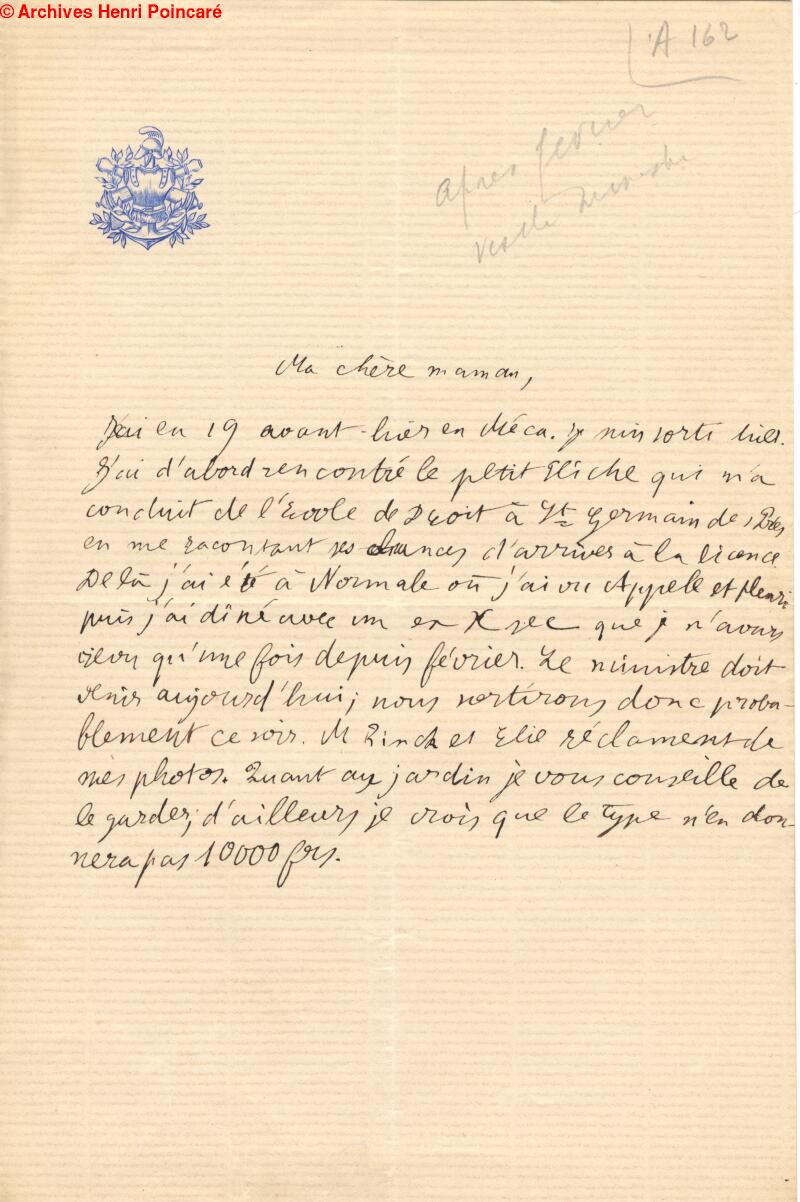 © Archives Henri Poincaré
A 162
après février
visite ministre
Ma chère maman,
J'ai eu 19 avant-hier en Méca. je suis sorti hier.
J'ai d'abord rencontré le petit Fliche qui m'a
conduit de l'Ecole de Droit à St Germain des Prés
en me racontant ses chances d'arriver à la licence.
De là j'ai été à Normale où j'ai vu Appell et
puis j'ai dîné avec un ex X sec que je n'avais
revu qu'une fois depuis février. Le ministre doit
venir aujourd'hui; nous sortirons donc proba-
blement ce soir. M Zinck et Elie réclament de
mes photos. Quant au jardin je vous conseille de
le garder; d'ailleurs je crois que le type n'en don-
nera pas 10000 frs.